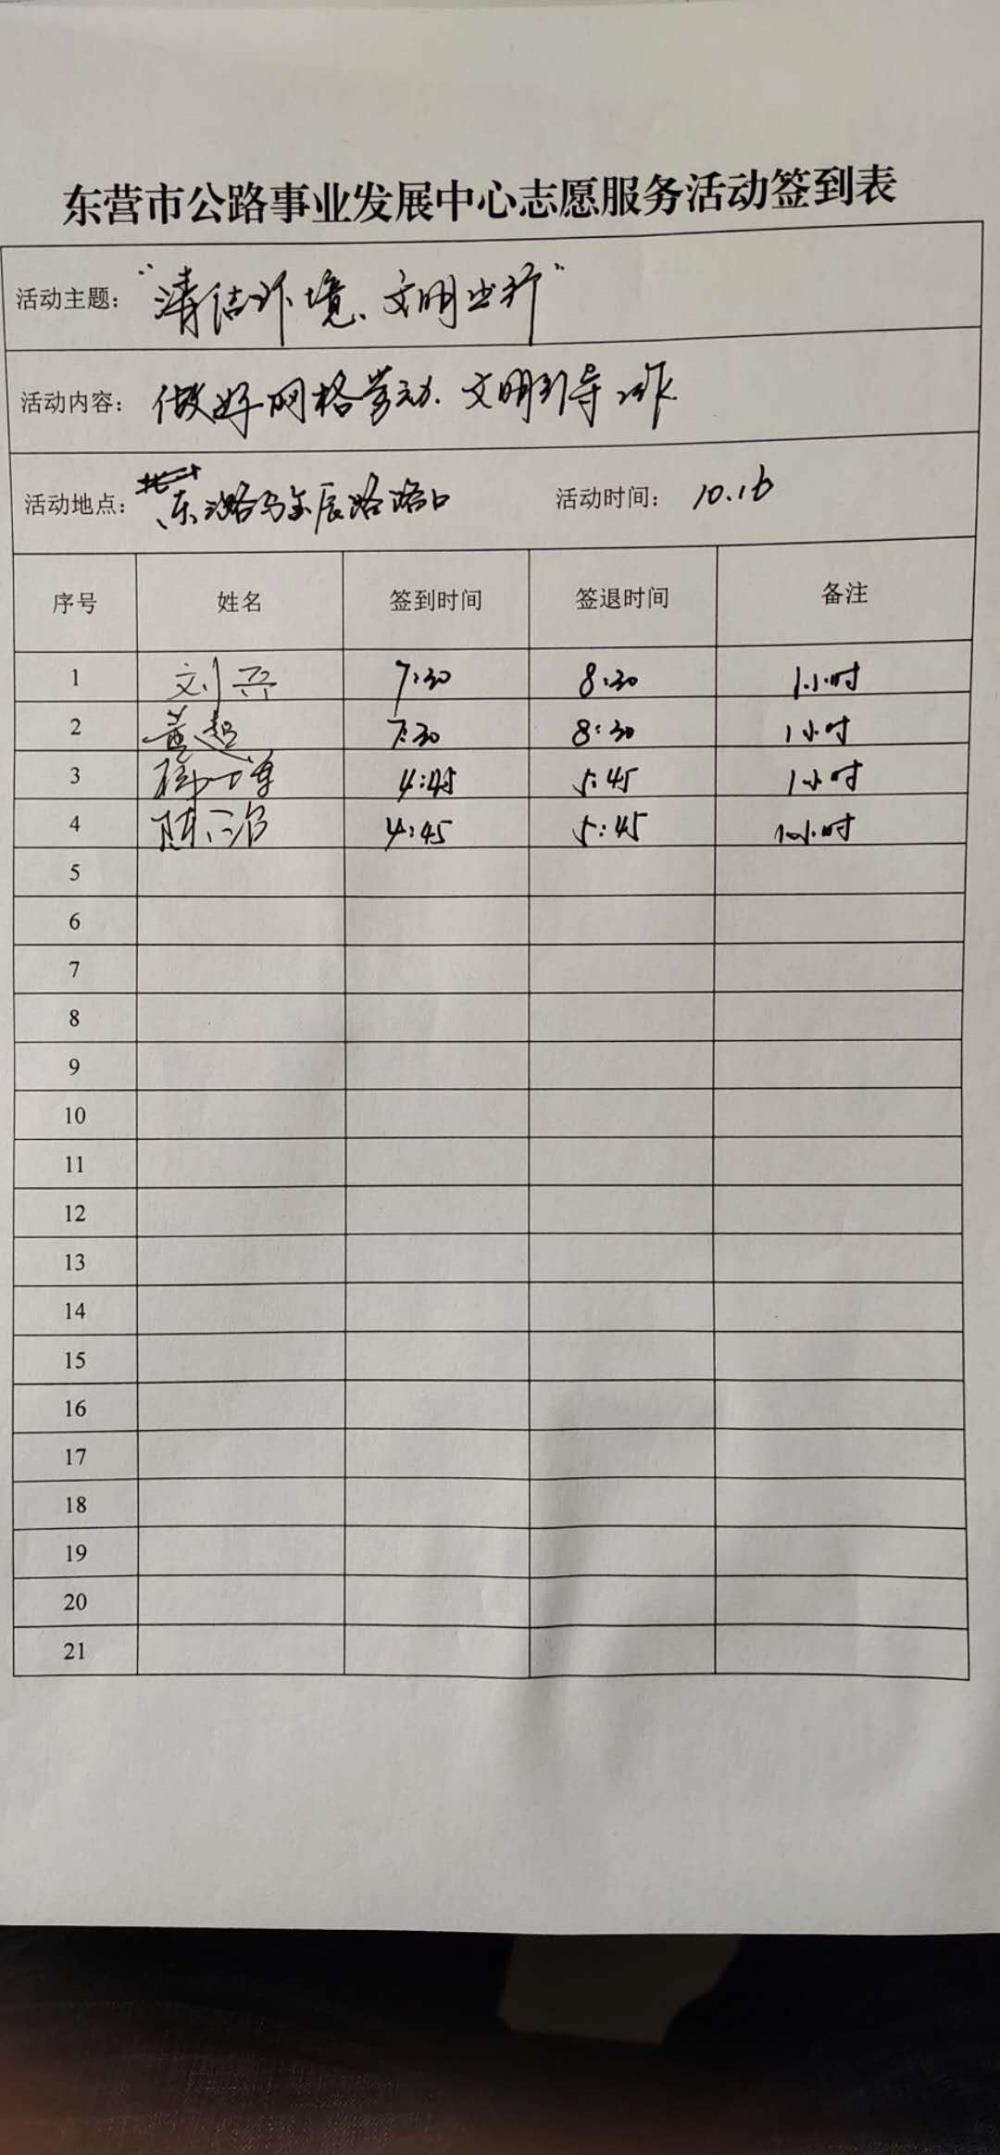 东营市公路事业发展中心志愿服务活动签到表
活动主题： “清洁环境、文明出行”
活动内容： 做好网格劳动、文明引导工作
活动地点： 东路与辰路路口 活动时间： 10.16
序号 姓名 签到时间 签退时间 备注
1 刘 7:30 8:30 1小时
2 黄超 7:30 8:30 1小时
3 4:45 5:45 1小时
4 陈 4:45 5:45 1小时
5
6
7
8
9
10
11
12
13
14
15
16
17
18
19
20
21